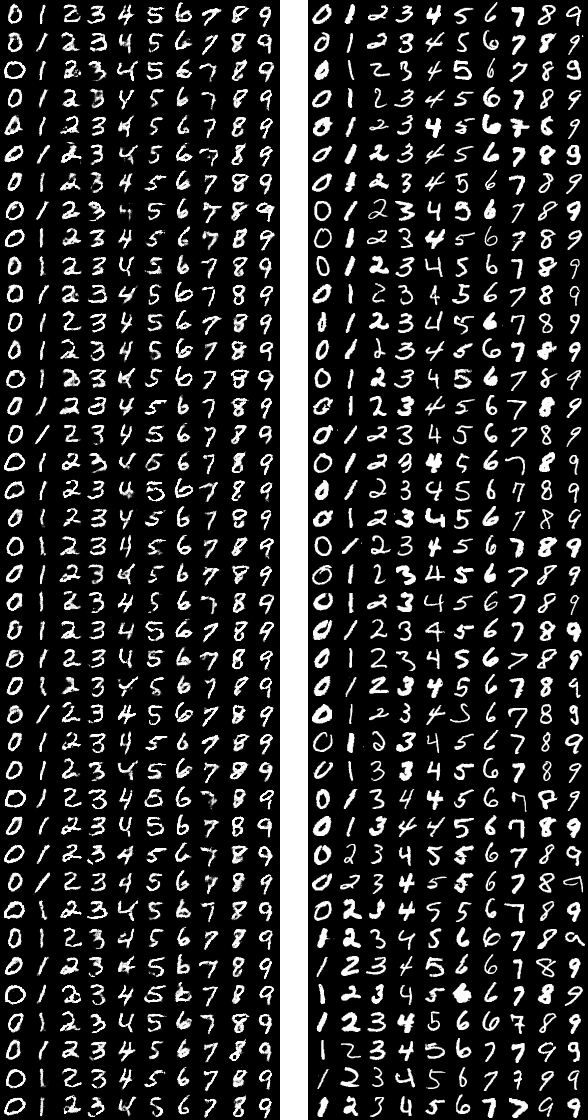 0 1 2 3 4 5 6 7 8 9 0 1 2 3 4 5 6 7 8 9
0 1 2 3 4 5 6 7 8 9 0 1 2 3 4 5 6 7 8 9
0 1 2 3 4 5 6 7 8 9 0 1 2 3 4 5 6 7 8 9
0 1 2 3 4 5 6 7 8 9 0 1 2 3 4 5 6 7 8 9
0 1 2 3 4 5 6 7 8 9 0 1 2 3 4 5 6 7 8 9
0 1 2 3 4 5 6 7 8 9 0 1 2 3 4 5 6 7 8 9
0 1 2 3 4 5 6 7 8 9 0 1 2 3 4 5 6 7 8 9
0 1 2 3 5 6 7 8 9 0 1 2 3 4 5 6 7 8 9
0 1 2 3 4 5 6 7 8 9 0 1 2 3 4 5 6 7 8 9
0 1 2 3 4 5 6 7 8 9 0 1 2 3 4 5 6 7 8 9
0 1 2 3 4 5 6 7 8 9 0 1 2 3 4 5 6 7 8 9
0 1 2 3 4 5 6 7 8 9 1 1 2 3 4 5 6 7 8 9
0 1 2 3 4 5 6 7 8 9 0 1 2 3 4 5 6 7 8 9
0 1 2 3 4 5 6 7 8 9 0 1 2 3 4 5 6 7 8 9
0 1 2 3 4 5 6 7 8 9 0 1 2 3 4 5 6 7 8 9
0 1 2 3 4 5 6 7 8 9 0 1 2 3 4 5 6 7 8 9
0 1 2 3 4 5 6 7 8 9 0 1 2 3 4 5 6 7 8 9
0 1 2 3 4 5 6 7 8 9 0 1 2 3 4 5 6 7 8 9
0 1 2 3 4 5 6 7 8 9 0 1 2 3 4 5 6 7 8 9
0 1 2 3 4 5 6 7 8 9 0 1 2 3 4 5 6 7 8 9
0 1 2 3 4 5 6 7 8 9 0 1 2 3 4 5 6 7 8 9
0 1 2 3 4 5 6 7 8 9 0 1 2 3 4 5 6 7 8 9
0 1 2 3 4 5 6 7 8 9 0 1 2 3 4 5 6 7 8 9
0 1 2 3 4 5 6 7 8 9 0 1 2 3 4 5 6 7 8 9
0 1 2 3 4 5 6 7 8 9 0 1 2 3 4 5 6 7 8 9
0 1 2 3 4 5 6 7 8 9 0 1 2 3 4 5 6 7 8 9
0 1 2 3 4 5 6 7 8 9 0 1 2 3 4 5 6 7 8 9
0 1 2 3 4 5 6 7 8 9 0 1 3 3 4 5 6 7 8 9
0 1 2 3 4 5 6 7 8 9 0 1 3 4 4 5 6 7 8 9
0 1 2 3 4 5 6 7 8 9 0 1 3 4 4 5 6 7 8 9
0 1 2 3 4 5 6 7 8 9 0 2 3 4 5 5 6 7 8 9
0 1 2 3 4 5 6 7 8 9 0 2 3 4 5 5 6 7 8 9
0 1 2 3 4 5 6 7 8 9 0 2 3 4 5 5 6 7 8 9
0 1 2 3 4 5 6 7 8 9 1 2 3 4 5 6 6 7 8 9
0 1 2 3 4 5 6 7 8 9 1 2 3 4 5 6 6 7 8 9
0 1 2 3 4 5 6 7 8 9 1 2 3 4 5 6 6 7 8 9
0 1 2 3 4 5 6 7 8 9 1 2 3 4 5 6 6 7 8 9
0 1 2 3 4 5 6 7 8 9 1 2 3 4 5 6 7 7 9 9
0 1 2 3 4 5 6 7 8 9 1 2 3 4 5 6 7 7 9 9
0 1 2 3 4 5 6 7 8 9 1 2 3 4 5 6 7 7 9 9